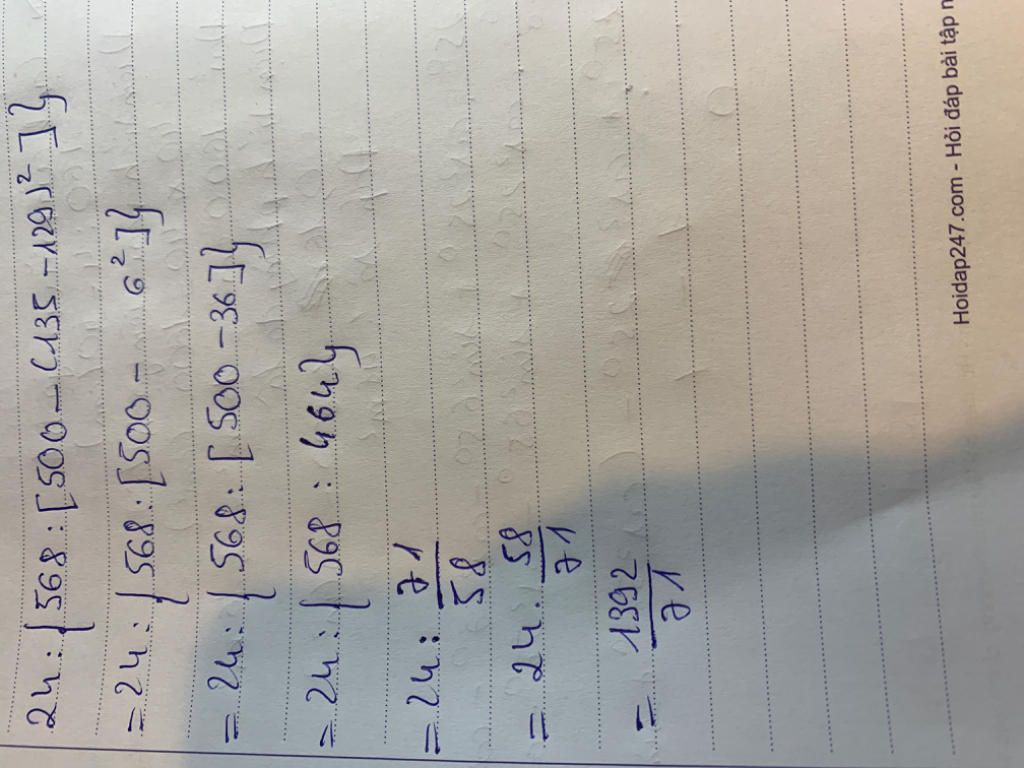 24:{568:[500-(135-129)² ]}
=24:{568:[500- 6²]}
=24:{568:[500-36]}
=24:{568 : 464}
=24: 71/58
= 24. 58/71
= 1392/71
Hoidap247.com - Hỏi đáp bài tập n